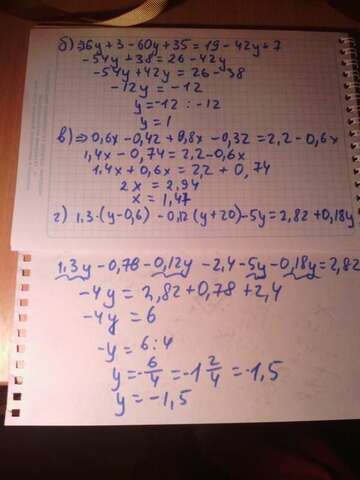 б) ⇒ 6y + 3 - 60y + 35 = 19 - 42y + 7
-54y + 38 = 26 - 42y
-54y + 42y = 26 - 38
-12y = -12
y = -12 : -12
y = 1
в) ⇒ 0,6x - 0,42 + 0,8x - 0,32 = 2,2 - 0,6x
1,4x - 0,74 = 2,2 - 0,6x
1,4x + 0,6x = 2,2 + 0,74
2x = 2,94
x = 1,47
г) 1,3·(y-0,6) - 0,12(y+20) - 5y = 2,82 + 0,18y
1,3y - 0,78 - 0,12y - 2,4 - 5y - 0,18y = 2,82
-4y = 2,82 + 0,78 + 2,4
-4y = 6
-y = 6 : 4
y = -6/4 = -1 2/4 = -1,5
y = -1,5